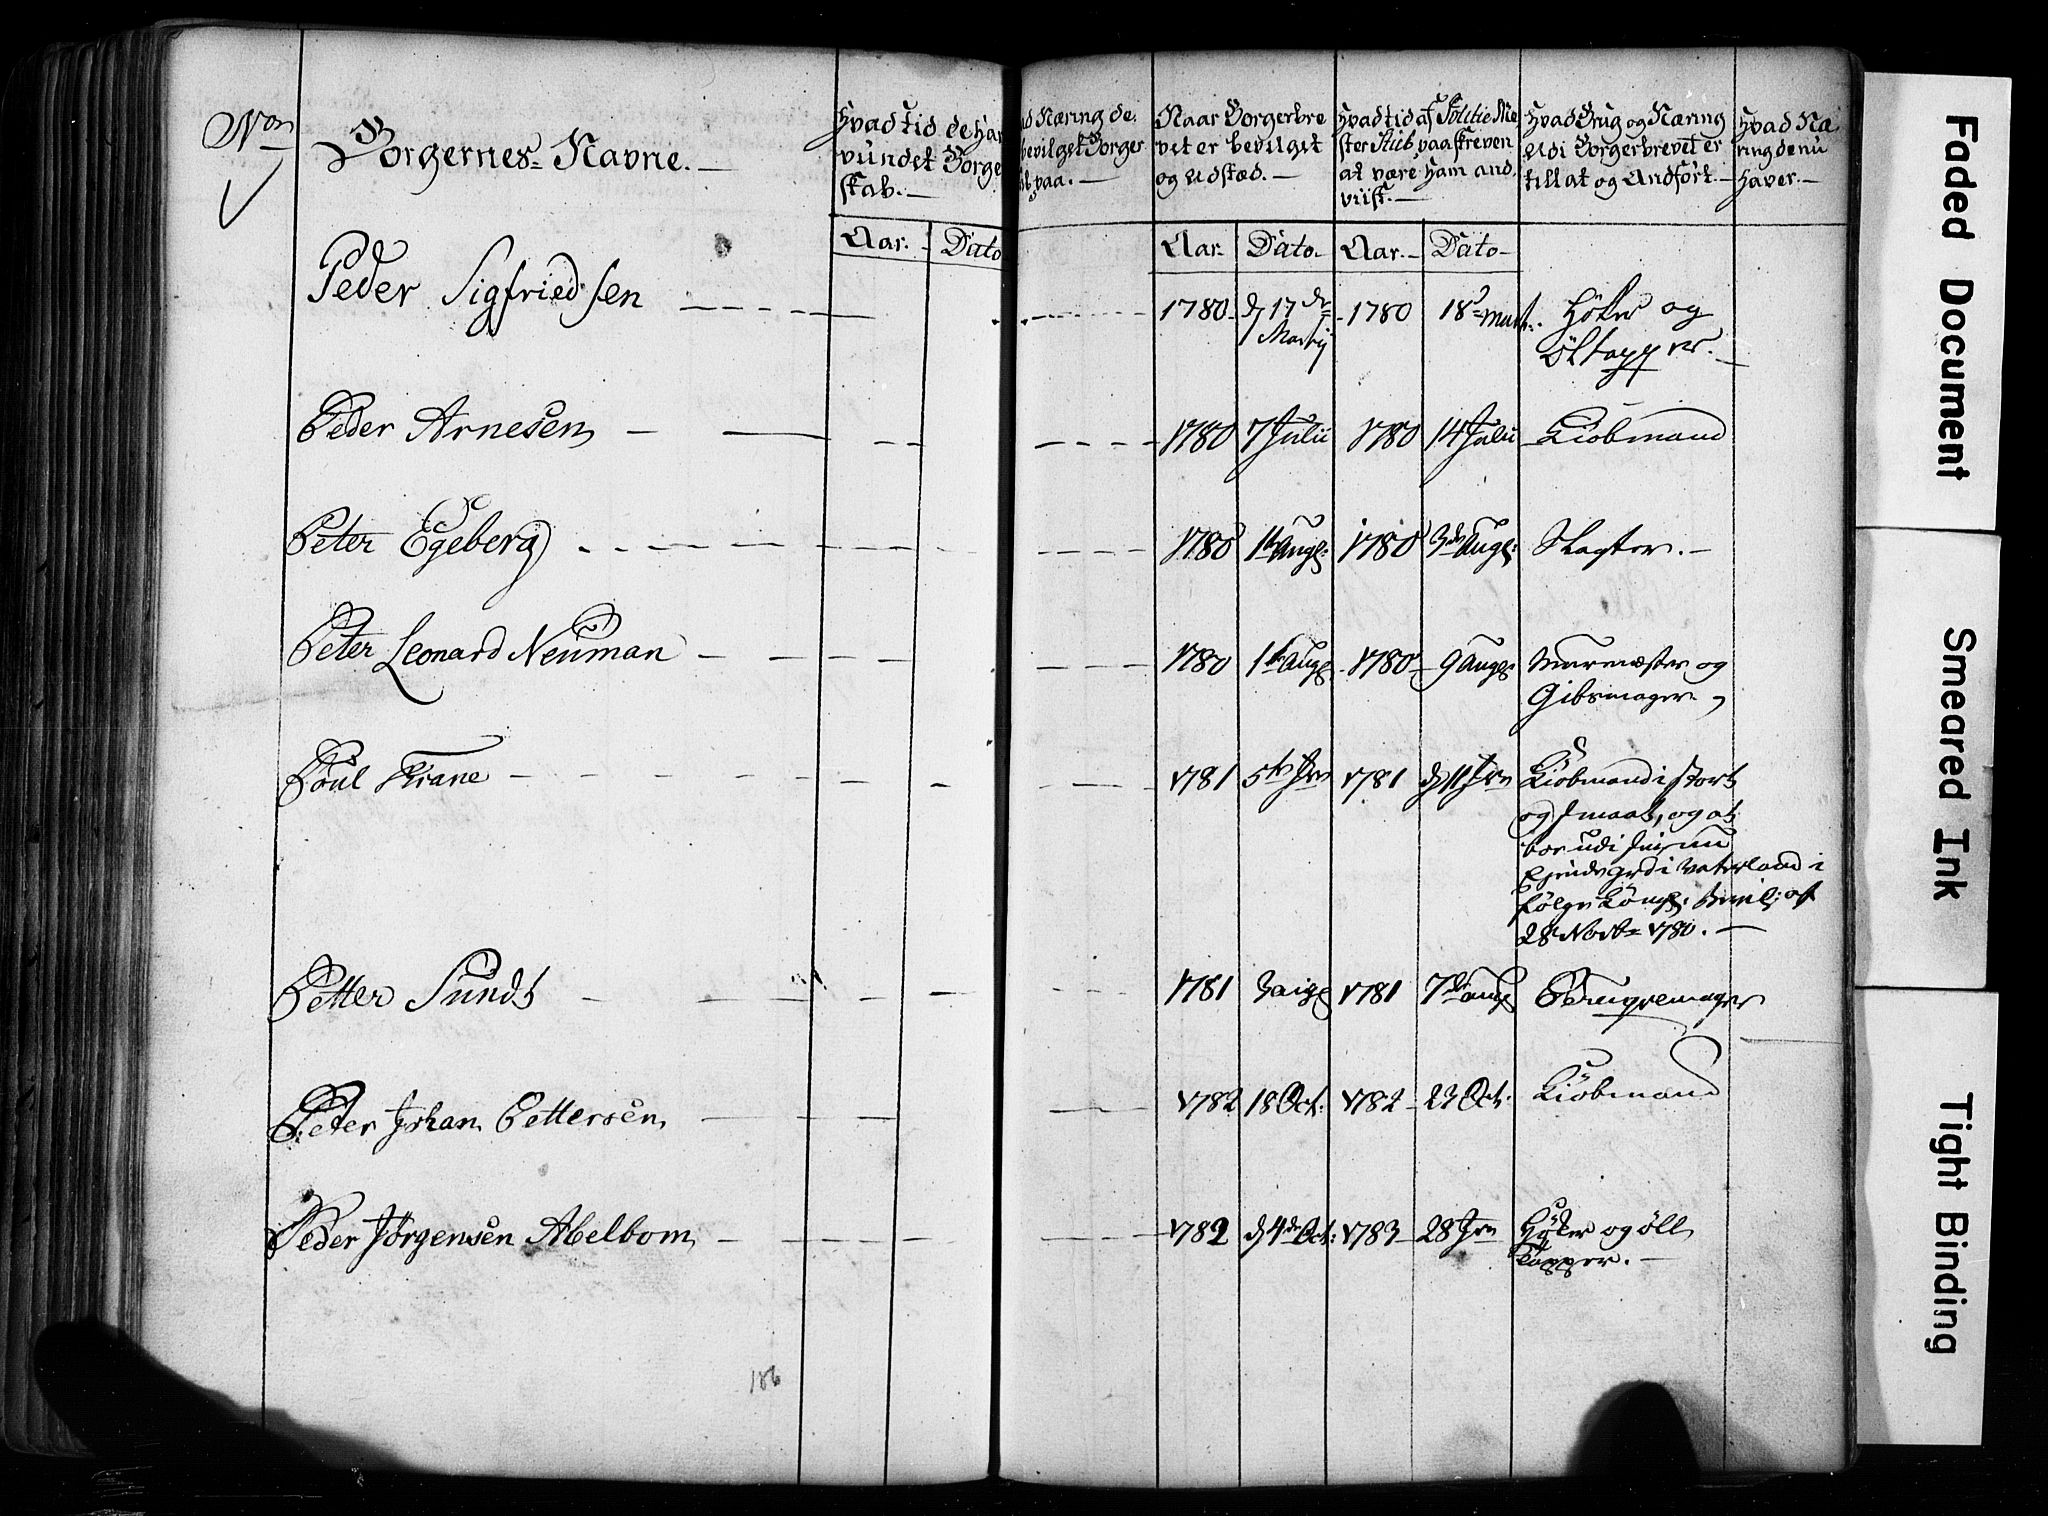 Non
Borgernes Navne.
Hvad tid de har
vundet Borge
skab.
Aar. Dato
d Næring de
bevilget Borger
vaa.
Naar Borgerbre
vet er bevilget
og Udstæd.
Aar. Dato.
Hvad tid af Politie Me
ster Stub paaskreven
at være ham and
viist.
Aar. Dato
Hvad Brug og Næring
Udi Borgerbrevet er
tillat og Andført.
Hvad Næ
ring de nu
haver.
Peder Sigfriedsen 1780 d 17de 1780 18 Mart: Höker og
Martij Öltapper.
Peder Arnesen 1780 7 Julii 1780 14 Julii Kiöbmand
Peter Egeberg 1780 1te Aug: 1780 3de Aug: Slagter.
Peter Leonard Neuman 1780 1te Aug 1780 9 Aug Murmæster og
Gibsmager
Poul Krane 1781 5te Jan 1781 d 11 Jan Kiöbmand i stort
og smaat, og at
boe udi sin
Ejende grd i Vaterland i
fölge Kongl: Bevil: af
28 Novb 1780.
Petter Sundt 1781 3 aug 1781 7de aug Peruqvemager
Peter Johan Pettersen 1782 18 Oct: 1782 23 Oct: Kiöbmand
Peder Jörgensen Abelbom 1782 d 4de Oct: 1783 28 Jan Höker og öll
tapper.
186
Faded Document
Smeared Ink
Tight Binding